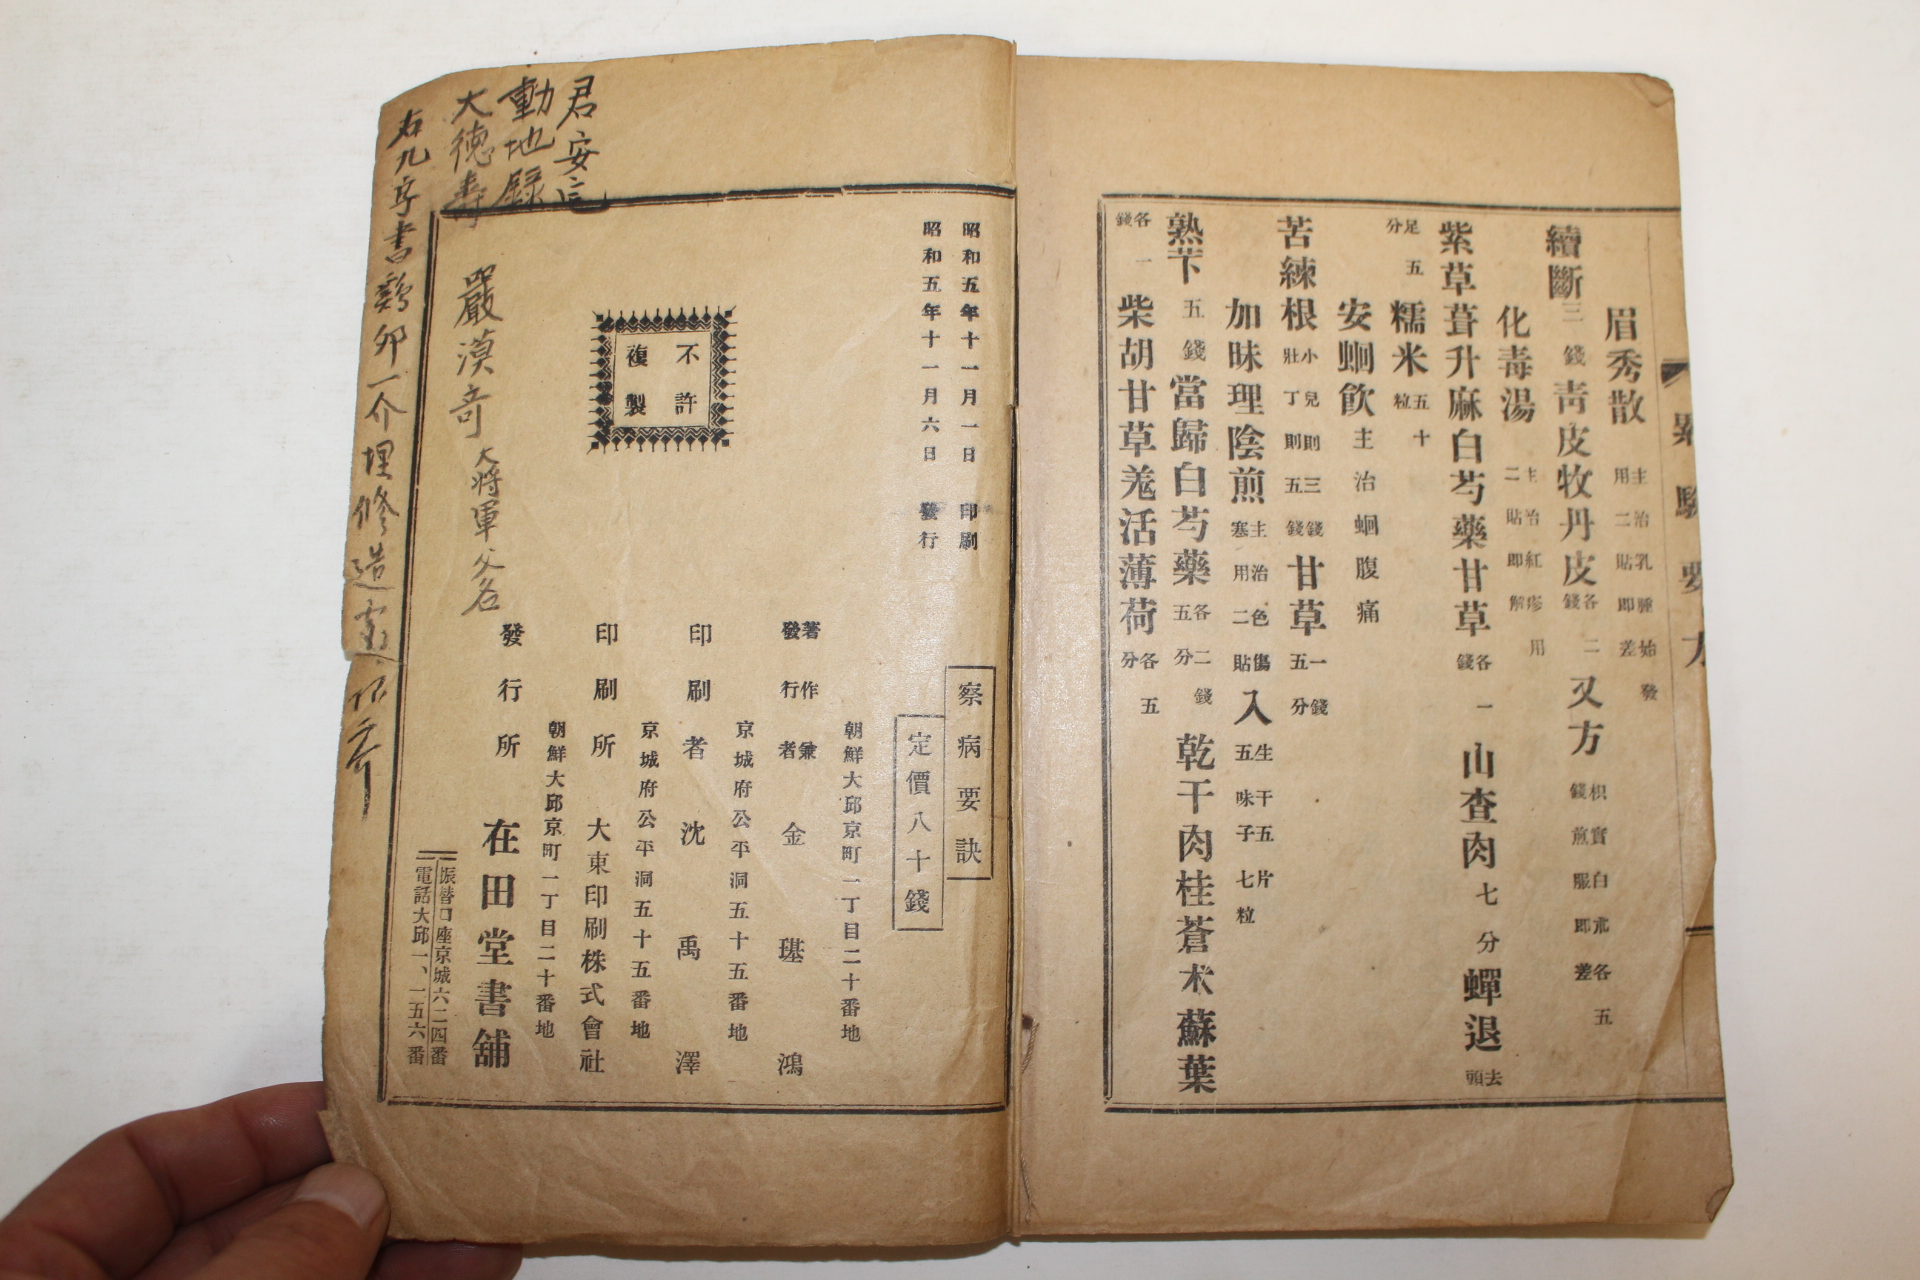 眉秀散 主治乳腫始發用二貼即差
續斷三錢靑皮牧丹皮各二錢 又方 枳實白朮各五錢煎服即差
化毒湯 主治紅疹用二貼即解
紫草葺升麻白芍藥甘草各一錢 山查肉七分蟬退去頭足五分
糯米五十粒
安蛔飮 主治蛔腹痛
苦練根 小兒則三錢壯丁則五錢 甘草一錢五分
加味理陰煎 主治色傷塞用二貼 入 生干五片五味子七粒
熟芐五錢當歸白芍藥各二錢五分 乾干肉桂蒼朮蘇葉各一錢
柴胡甘草羗活薄荷各五分
昭和五年十一月一日 印刷
昭和五年十一月六日 發行
察病要訣
定價八十錢
朝鮮大邱京町一丁目二十番地
著作兼發行者 金璂鴻
京城府公平洞五十五番地
印刷者 沈禹澤
京城府公平洞五十五番地
印刷所 大東印刷株式會社
朝鮮大邱京町一丁目二十番地
發行所 在田堂書舖
振替口座京城六二四番
電話大邱一、一五六番
不許
複製
君安
動地録
大徳壽
嚴漠奇 大將軍父名
右九字書鷄卵一介埋修造